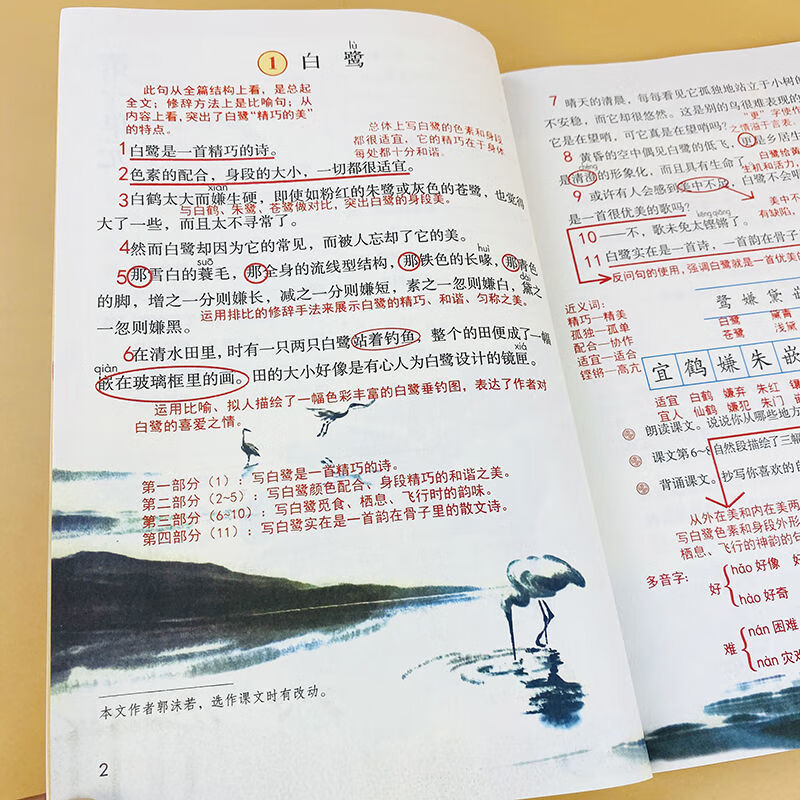 lù
1 白 鹭
此句从全篇结构上看，是总起
全文；修辞方法上是比喻句；从
内容上看，突出了白鹭“精巧的美”
的特点。
总体上写白鹭的色素和身段
都很适宜，它的精巧在于身体
每处都十分和谐。
1白鹭是一首精巧的诗。
2色素的配合，身段的大小，一切都很适宜。
xián
3白鹤太大而嫌生硬，即使如粉红的朱鹭或灰色的苍鹭，也觉得
与白鹤、朱鹭、苍鹭做对比，突出白鹭的身段美。
大了一些，而且太不寻常了。
4然而白鹭却因为它的常见，而被人忘却了它的美。
suō huì
5那雪白的蓑毛，那全身的流线型结构，那铁色的长喙，那青色
dài
的脚，增之一分则嫌长，减之一分则嫌短，素之一忽则嫌白，黛之
运用排比的修辞手法来展示白鹭的精巧、和谐、匀称之美。
一忽则嫌黑。
6在清水田里，时有一只两只白鹭站着钓鱼，整个的田便成了一幅
qiàn xiá
嵌在玻璃框里的画。田的大小好像是有心人为白鹭设计的镜匣。
运用比喻、拟人描绘了一幅色彩丰富的白鹭垂钓图，表达了作者对
白鹭的喜爱之情。
第一部分（1）：写白鹭是一首精巧的诗。
第二部分（2~5）：写白鹭颜色配合、身段精巧的和谐之美。
第三部分（6~10）：写白鹭觅食、栖息、飞行时的韵味。
第四部分（11）：写白鹭实在是一首韵在骨子里的散文诗。
本文作者郭沫若，选作课文时有改动。
2
7 晴天的清晨，每每看见它孤独地站立于小树的
不安稳，而它却很悠然。这是别的鸟很难表现的
“更”字使作
它是在望哨，可它真是在望哨吗？
之情溢于言表。
8 黄昏的空中偶见白鹭的低飞，更是乡居生
白鹭给黄
是清澄的形象化，而且具有生命了。
生机和活力，
9 或许有人会感到美中不足，白鹭不会唱
美中不
是一首很优美的歌吗？
有缺陷，
kēng qiāng
10——不，歌未免太铿锵了。
11白鹭实在是一首诗，一首韵在骨子
反问句的使用，强调白鹭就是一首优美的
近义词：
精巧—精美
孤独—孤单
配合—协作
适宜—适合
铿锵—高亢
鹭 嫌 黛 嵌
白鹭 黛青
苍鹭 浅黛
宜 鹤 嫌 朱 嵌
适宜 白鹤 嫌弃 朱红 镶
宜人 仙鹤 嫌犯 朱门 嵌
朗读课文。说说你从哪些地方
课文第6~8自然段描绘了三幅
背诵课文。抄写你喜欢的自
从外在美和内在美两
写白鹭色素和身段外形
栖息、飞行的神韵的句
多音字：
好
hǎo 好像 好
hào 好奇
难
nán 困难
nàn 灾难